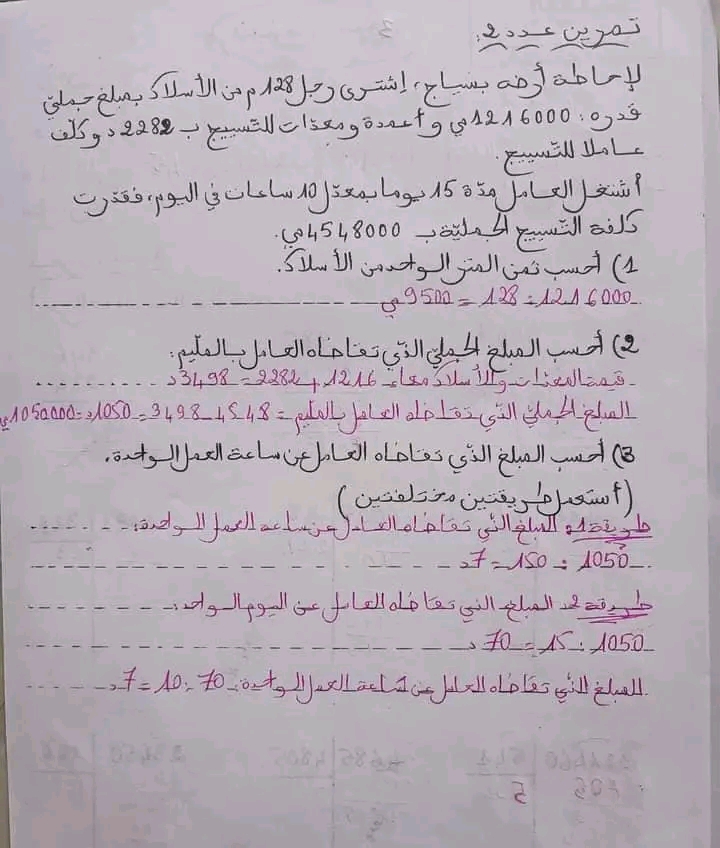 تمرين عدد 2:
لإحاطة أرضه بسياج، إشترى رجل 128م من الأسلاك بمبلغ جملي
قدره: 1216000مي وأعمدة ومعدّات للتسييج ب 2282د وكلّف
عاملا للتسييج.
أشتغل العامل مدّة 15 يوما بمعدّل 10 ساعات في اليوم، فقدّرت
كلفة التسييج الجمليّة ب 4548000مي.
1) أحسب ثمن المتر الواحد من الأسلاك.
1216000 : 128 = 9500مي
2) أحسب المبلغ الجملي الذّي تقاضاه العامل بالمليم:
قيمة المعدّات والأسلاك معا: 1216 + 2282 = 3498د
المبلغ الجملي الذي تقاضاه العامل بالمليم = 4548 - 3498 = 1050د = 1050000مي
3) أحسب المبلغ الذّي تقاضاه العامل عن ساعة العمل الواحدة.
(أستعمل طريقتين مختلفتين)
طريقة 1: المبلغ الذي تقاضاه العامل عن ساعة العمل الواحدة:
1050 : 150 = 7د
طريقة 2: المبلغ الذي تقاضاه العامل عن اليوم الواحد:
1050 : 15 = 70د
المبلغ الذي تقاضاه العامل عن ساعة العمل الواحدة: 70 : 10 = 7د